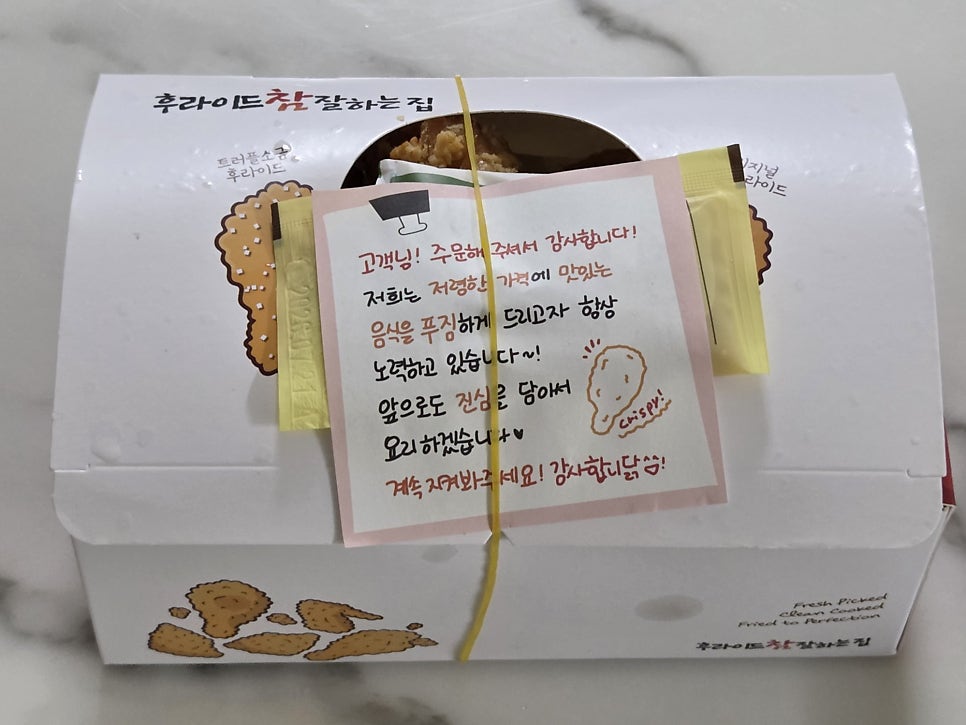 후라이드참잘하는집
트러플소금
후라이드
지널
라이드
고객님! 주문해 주셔서 감사합니다!
저희는 저렴한 가격에 맛있는
음식을 푸짐하게 드리고자 항상
노력하고 있습니다~!
앞으로도 진심을 담아서
요리하겠습니다♥
계속 지켜봐주세요! 감사합니닭^^!
crispy!
Fresh Picked
Clean Cooked
Fried to Perfection
후라이드참잘하는집